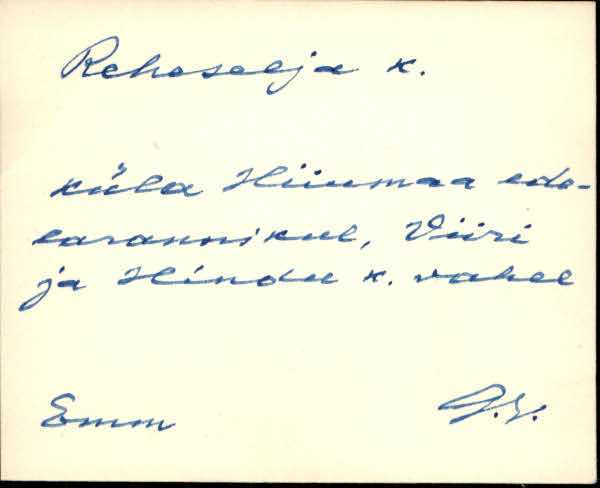 Rehoselja k.
küla Hiiumaa edo-
larannikul, Viiri
ja Hindu k. vahel
Emm